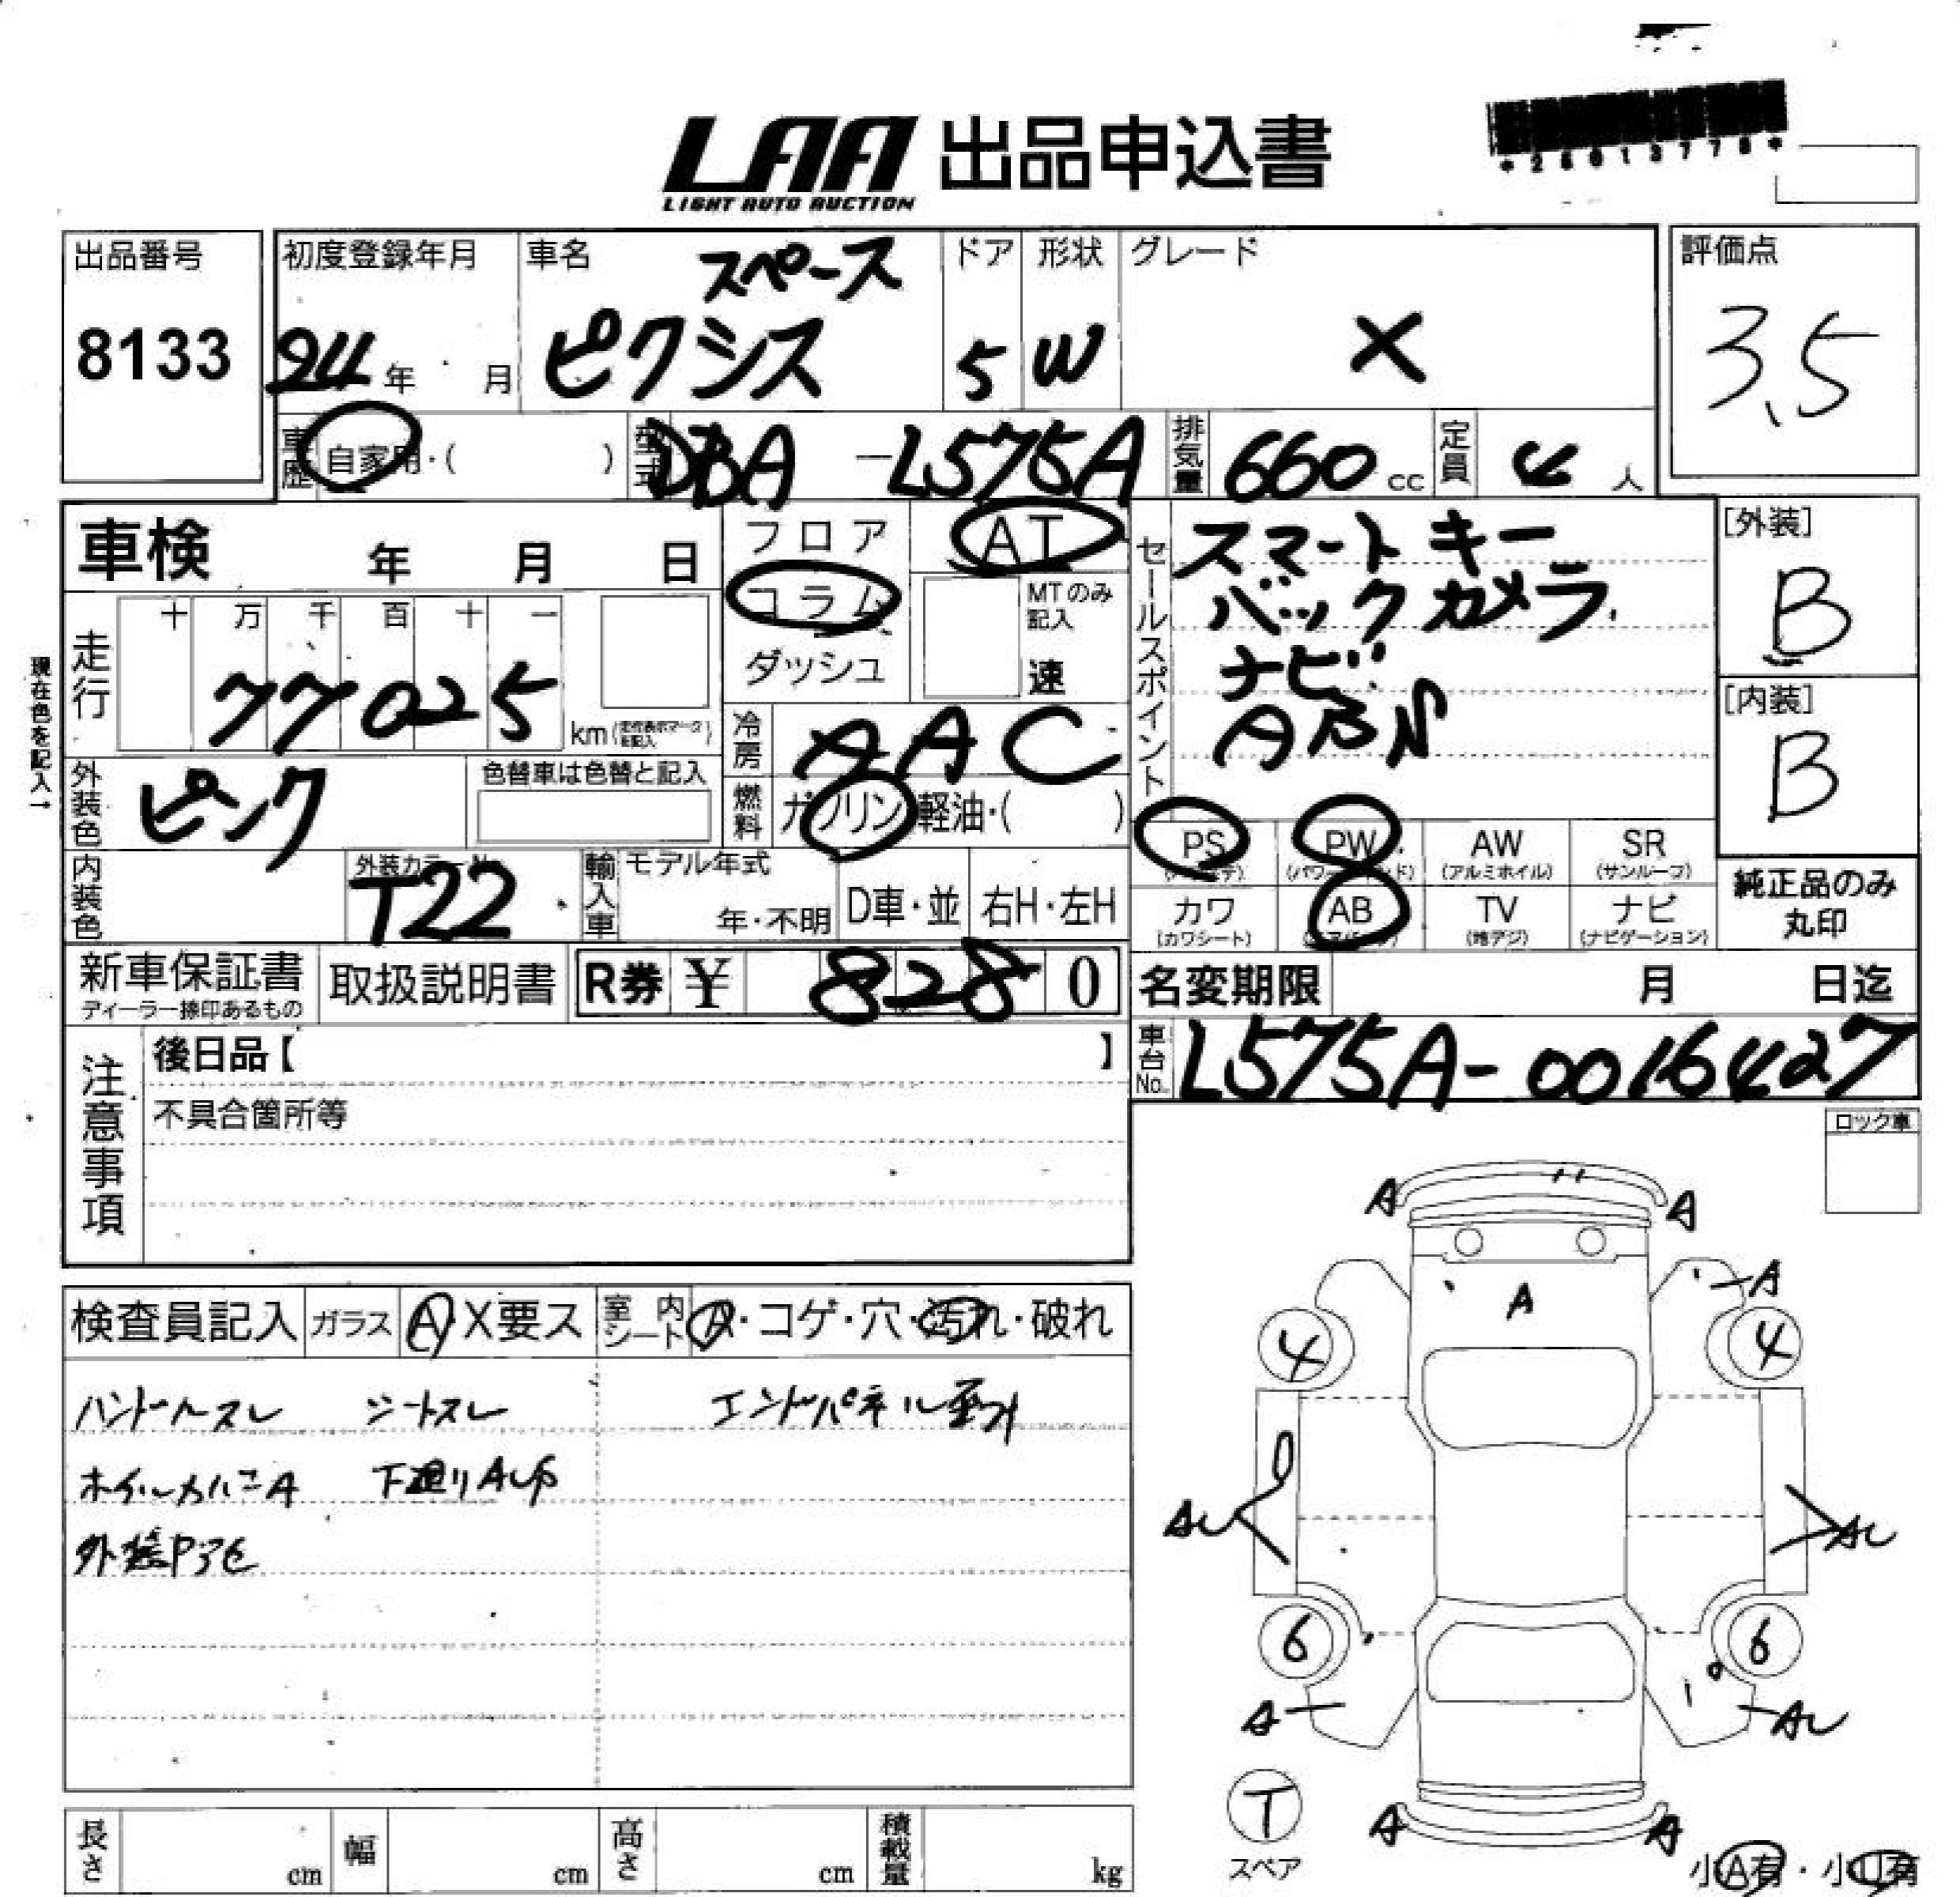 LAA 出品申込書
LIGHT AUTO AUCTION
*26013778*
出品番号
8133
初度登録年月
24年 月
車名
スペース
ピクシス
ドア
5
形状
W
グレード
X
評価点
3.5
車歴 自家用・( )
型式 DBA-L575A
排気量 660 cc
定員 4 人
車検 年 月 日
フロア
コラム
ダッシュ
AT
MTのみ記入
速
セールスポイント
スマートキー
バックカメラ
ナビ
ABS
[外装]
B
[内装]
B
現在色を記入→
走行
十 万 千 百 十 一
77025 km
冷房 AAC
外装色 ピンク
色替車は色替と記入
燃料 ガソリン 軽油・( )
PS
PW
AW (アルミホイル)
SR (サンルーフ)
内装色
T22
輸入車
モデル年式
年・不明
D車・並
右H・左H
カワ (カワシート)
AB
TV (地デジ)
ナビ (ナビゲーション)
純正品のみ
丸印
新車保証書
ディーラー捺印あるもの
取扱説明書
R券 ¥ 828 0
名変期限 月 日迄
車台No. L575A-0016427
注意事項
後日品【 】
不具合箇所等
ロック車
検査員記入 ガラス A X要ス 室内シート A・コゲ・穴・汚れ・破れ
ハンドルスレ シートスレ
エンドパネル歪み
ホイルカバーA
下廻り
A A
A A
4 4
AU AU
6 6
A AU
T
スペア
A A
小A有・小U有
長さ cm
幅 cm
高さ cm
積載量 kg